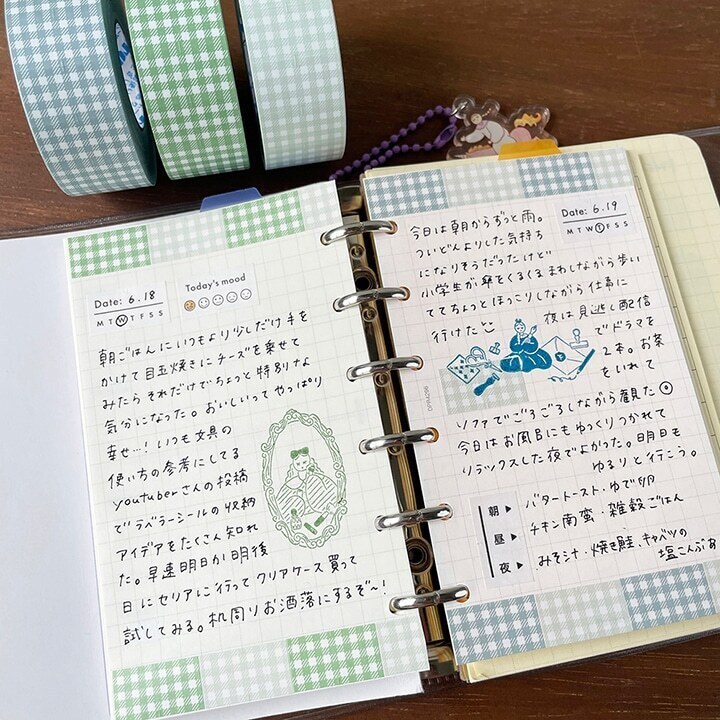 Date: 6.18
M T W T F S S
Today's mood
朝ごはんにいつもより少しだけ手を
かけて目玉焼きにチーズを乗せて
みたらそれだけでちょっと特別な
気分になった。おいしいってやっぱり
幸せ…! いつも文具の
使い方の参考にしてる
youtuberさんの投稿
でラベラーシールの収納
アイデアをたくさん知れ
た。早速明日か明後
日にセリアに行ってクリアケース買って
試してみる。机周りお洒落にするぞ〜!
Date: 6.19
M T W T F S S
今日は朝からずっと雨。
ついどんよりした気持ち
になりそうだったけど
小学生が傘をくるくるまわしながら歩い
ててちょっとほっこりしながら仕事に
行けた
夜は見逃し配信
でドラマを
2本。お茶
をいれて
ソファでごろごろしながら観た
今日はお風呂にもゆっくりつかれて
リラックスした夜でよかった。明日も
ゆるりと行こう。
朝 ▶ バタートースト・ゆで卵
昼 ▶ チキン南蛮・雑穀ごはん
夜 ▶ みそ汁・焼き鮭、キャベツの
塩こんぶあ